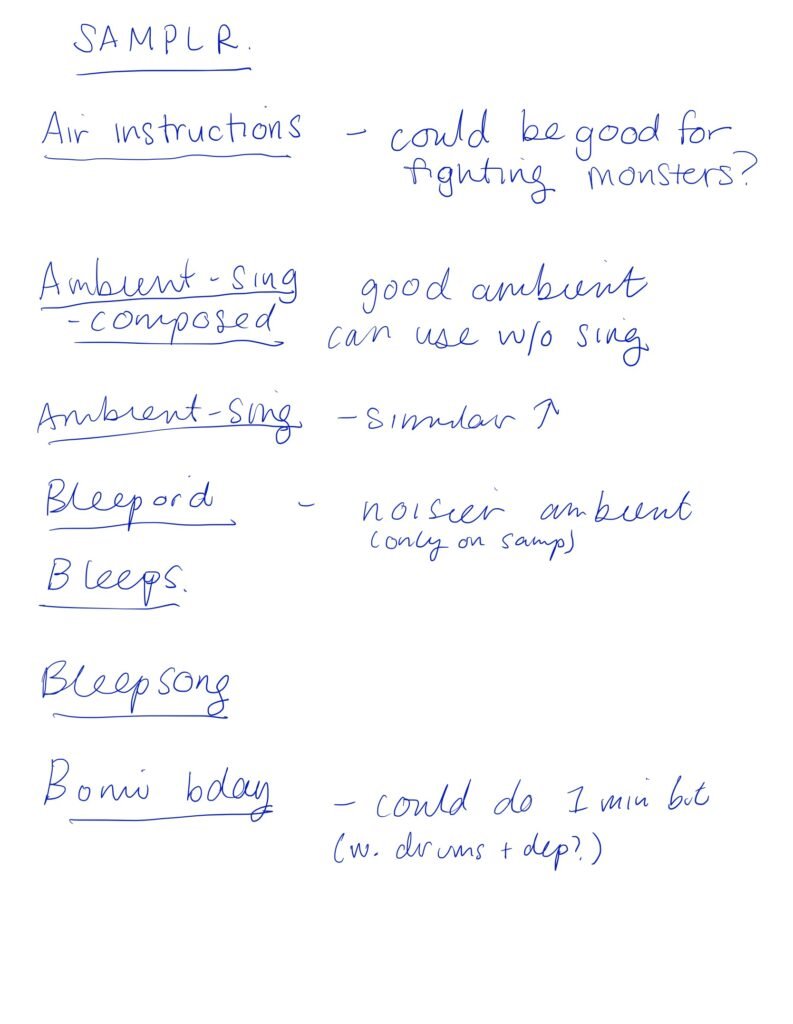 SAMPLR.
Air instructions - could be good for
fighting monsters?
Ambient-sing good ambient
-composed can use w/o sing
Ambient-sing - similar ↑
Bleepord - noisier ambient
(only on samp)
Bleeps.
Bleepsong
Bomi bday - could do 1 min but
(w. drums + dep?)